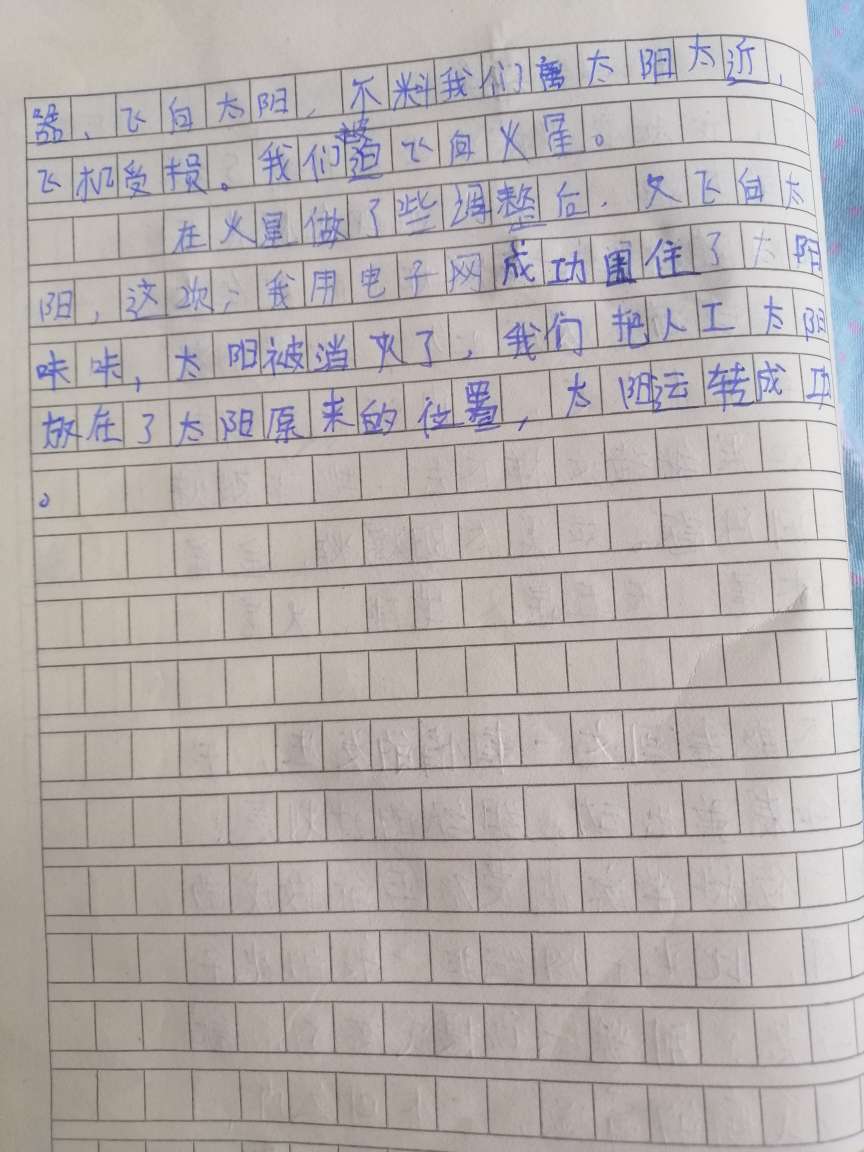 器、飞向太阳，不料我们离太阳太近，
飞机受损。我们被迫飞向火星。
在火星做了些调整后，又飞向太
阳，这次，我用电子网成功围住了太阳
咔咔，太阳被消灭了，我们把人工太阳
放在了太阳原来的位置，太阳运转成功
。